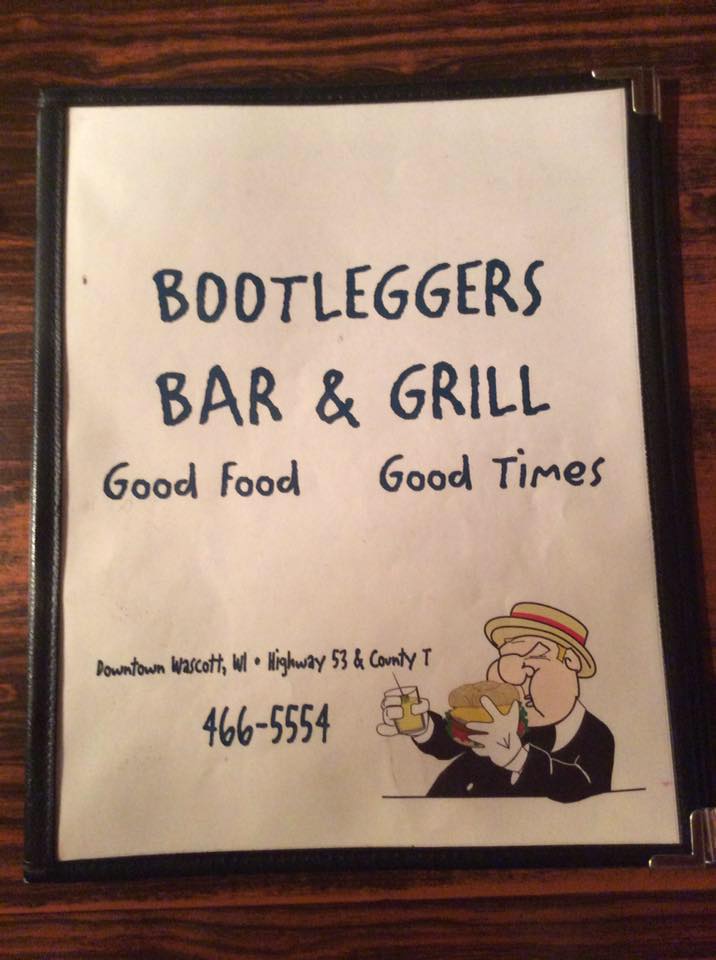 BOOTLEGGERS
BAR & GRILL
Good Food Good Times
Downtown Wascott, WI • Highway 53 & County T
466-5554